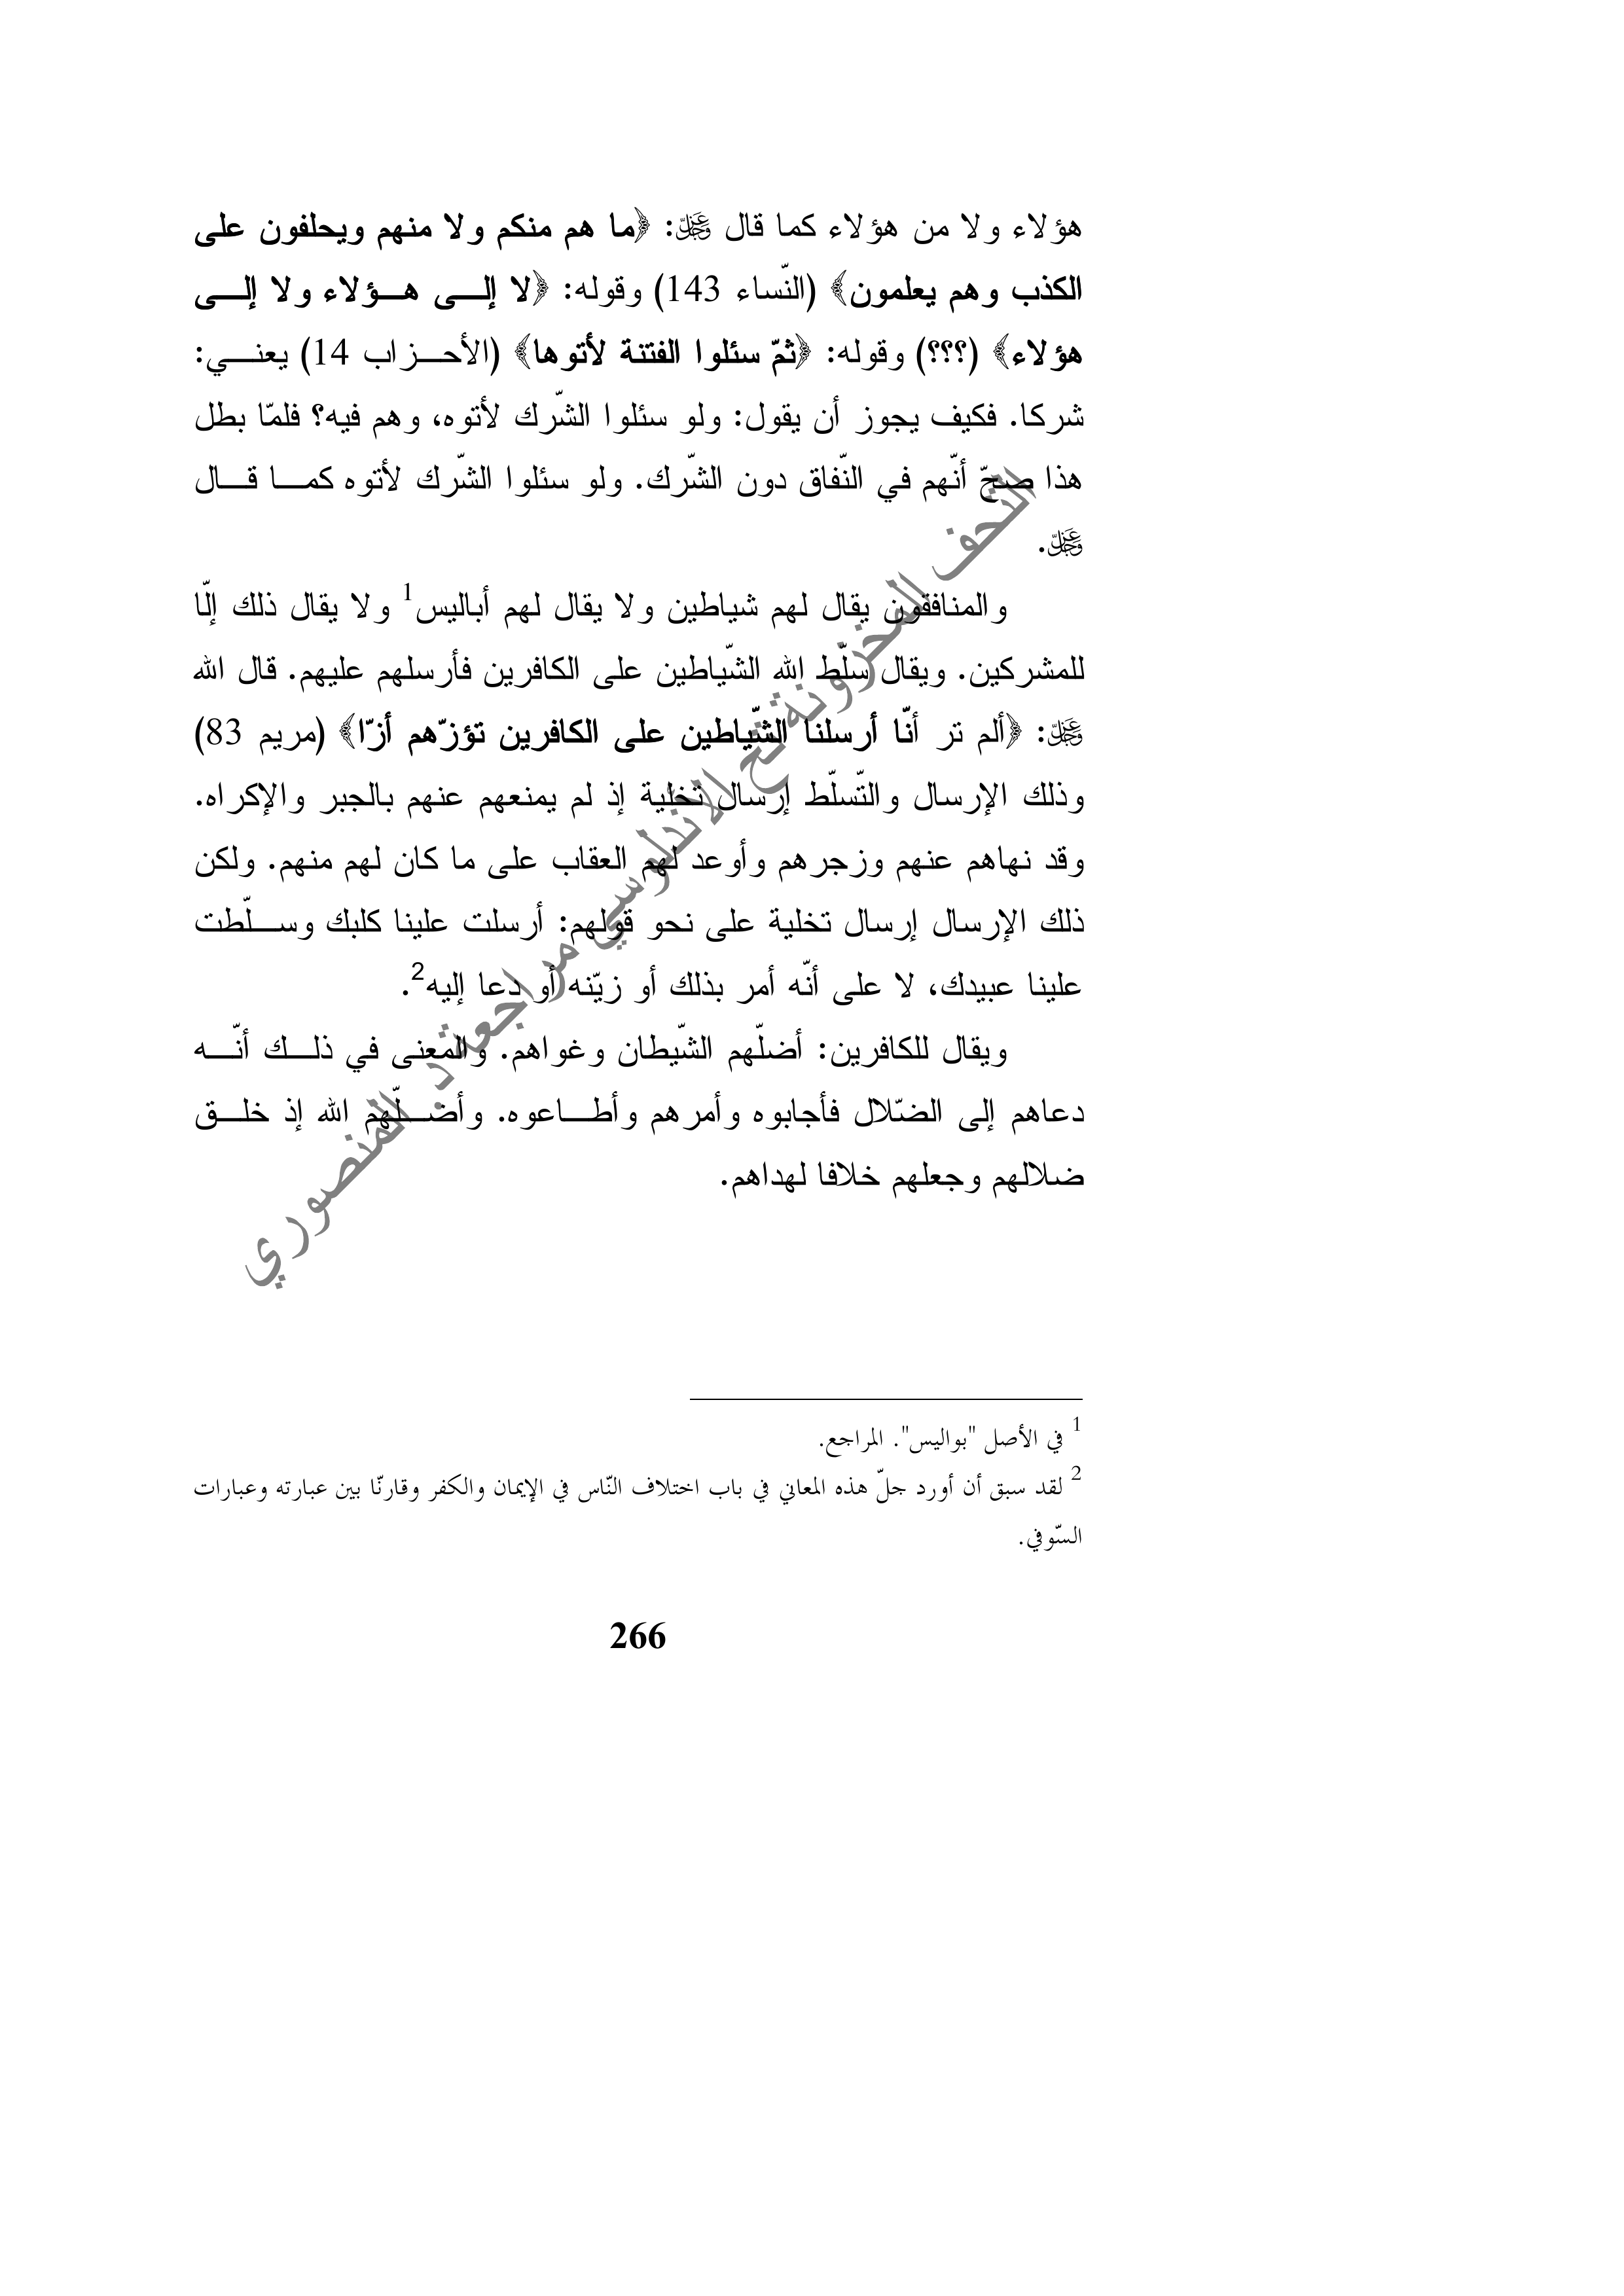 هؤلاء ولا من هؤلاء كما قال ﷿: ﴿ما هم منكم ولا منهم ويحلفون على
الكذب وهم يعلمون﴾ (النّساء 143) وقوله: ﴿لا إلى هؤلاء ولا إلى
هؤلاء﴾ (؟؟؟) وقوله: ﴿ثمّ سئلوا الفتنة لأتوها﴾ (الأحزاب 14) يعني:
شركا. فكيف يجوز أن يقول: ولو سئلوا الشّرك لأتوه، وهم فيه؟ فلمّا بطل
هذا صحّ أنّهم في النّفاق دون الشّرك. ولو سئلوا الشّرك لأتوه كما قال
﷿.
والمنافقون يقال لهم شياطين ولا يقال لهم أباليس1 ولا يقال ذلك إلّا
للمشركين. ويقال سلّط الله الشّياطين على الكافرين فأرسلهم عليهم. قال الله
﷿: ﴿ألم تر أنّا أرسلنا الشّياطين على الكافرين تؤزّهم أزّا﴾ (مريم 83)
وذلك الإرسال والتّسلّط إرسال تخلية إذ لم يمنعهم عنهم بالجبر والإكراه.
وقد نهاهم عنهم وزجرهم وأوعد لهم العقاب على ما كان لهم منهم. ولكن
ذلك الإرسال إرسال تخلية على نحو قولهم: أرسلت علينا كلبك وسلّطت
علينا عبيدك، لا على أنّه أمر بذلك أو زيّنه أو دعا إليه2.
ويقال للكافرين: أضلّهم الشّيطان وغواهم. والمعنى في ذلك أنّه
دعاهم إلى الضّلال فأجابوه وأمرهم وأطاعوه. وأضلّهم الله إذ خلق
ضلالهم وجعلهم خلافا لهداهم.
التحف المخزونة تح الاندلوسي مراجعة د. المنصوري
1 في الأصل "بواليس". المراجع.
2 لقد سبق أن أورد جلّ هذه المعاني في باب اختلاف النّاس في الإيمان والكفر وقارنّا بين عبارته وعبارات
السّوفي.
266